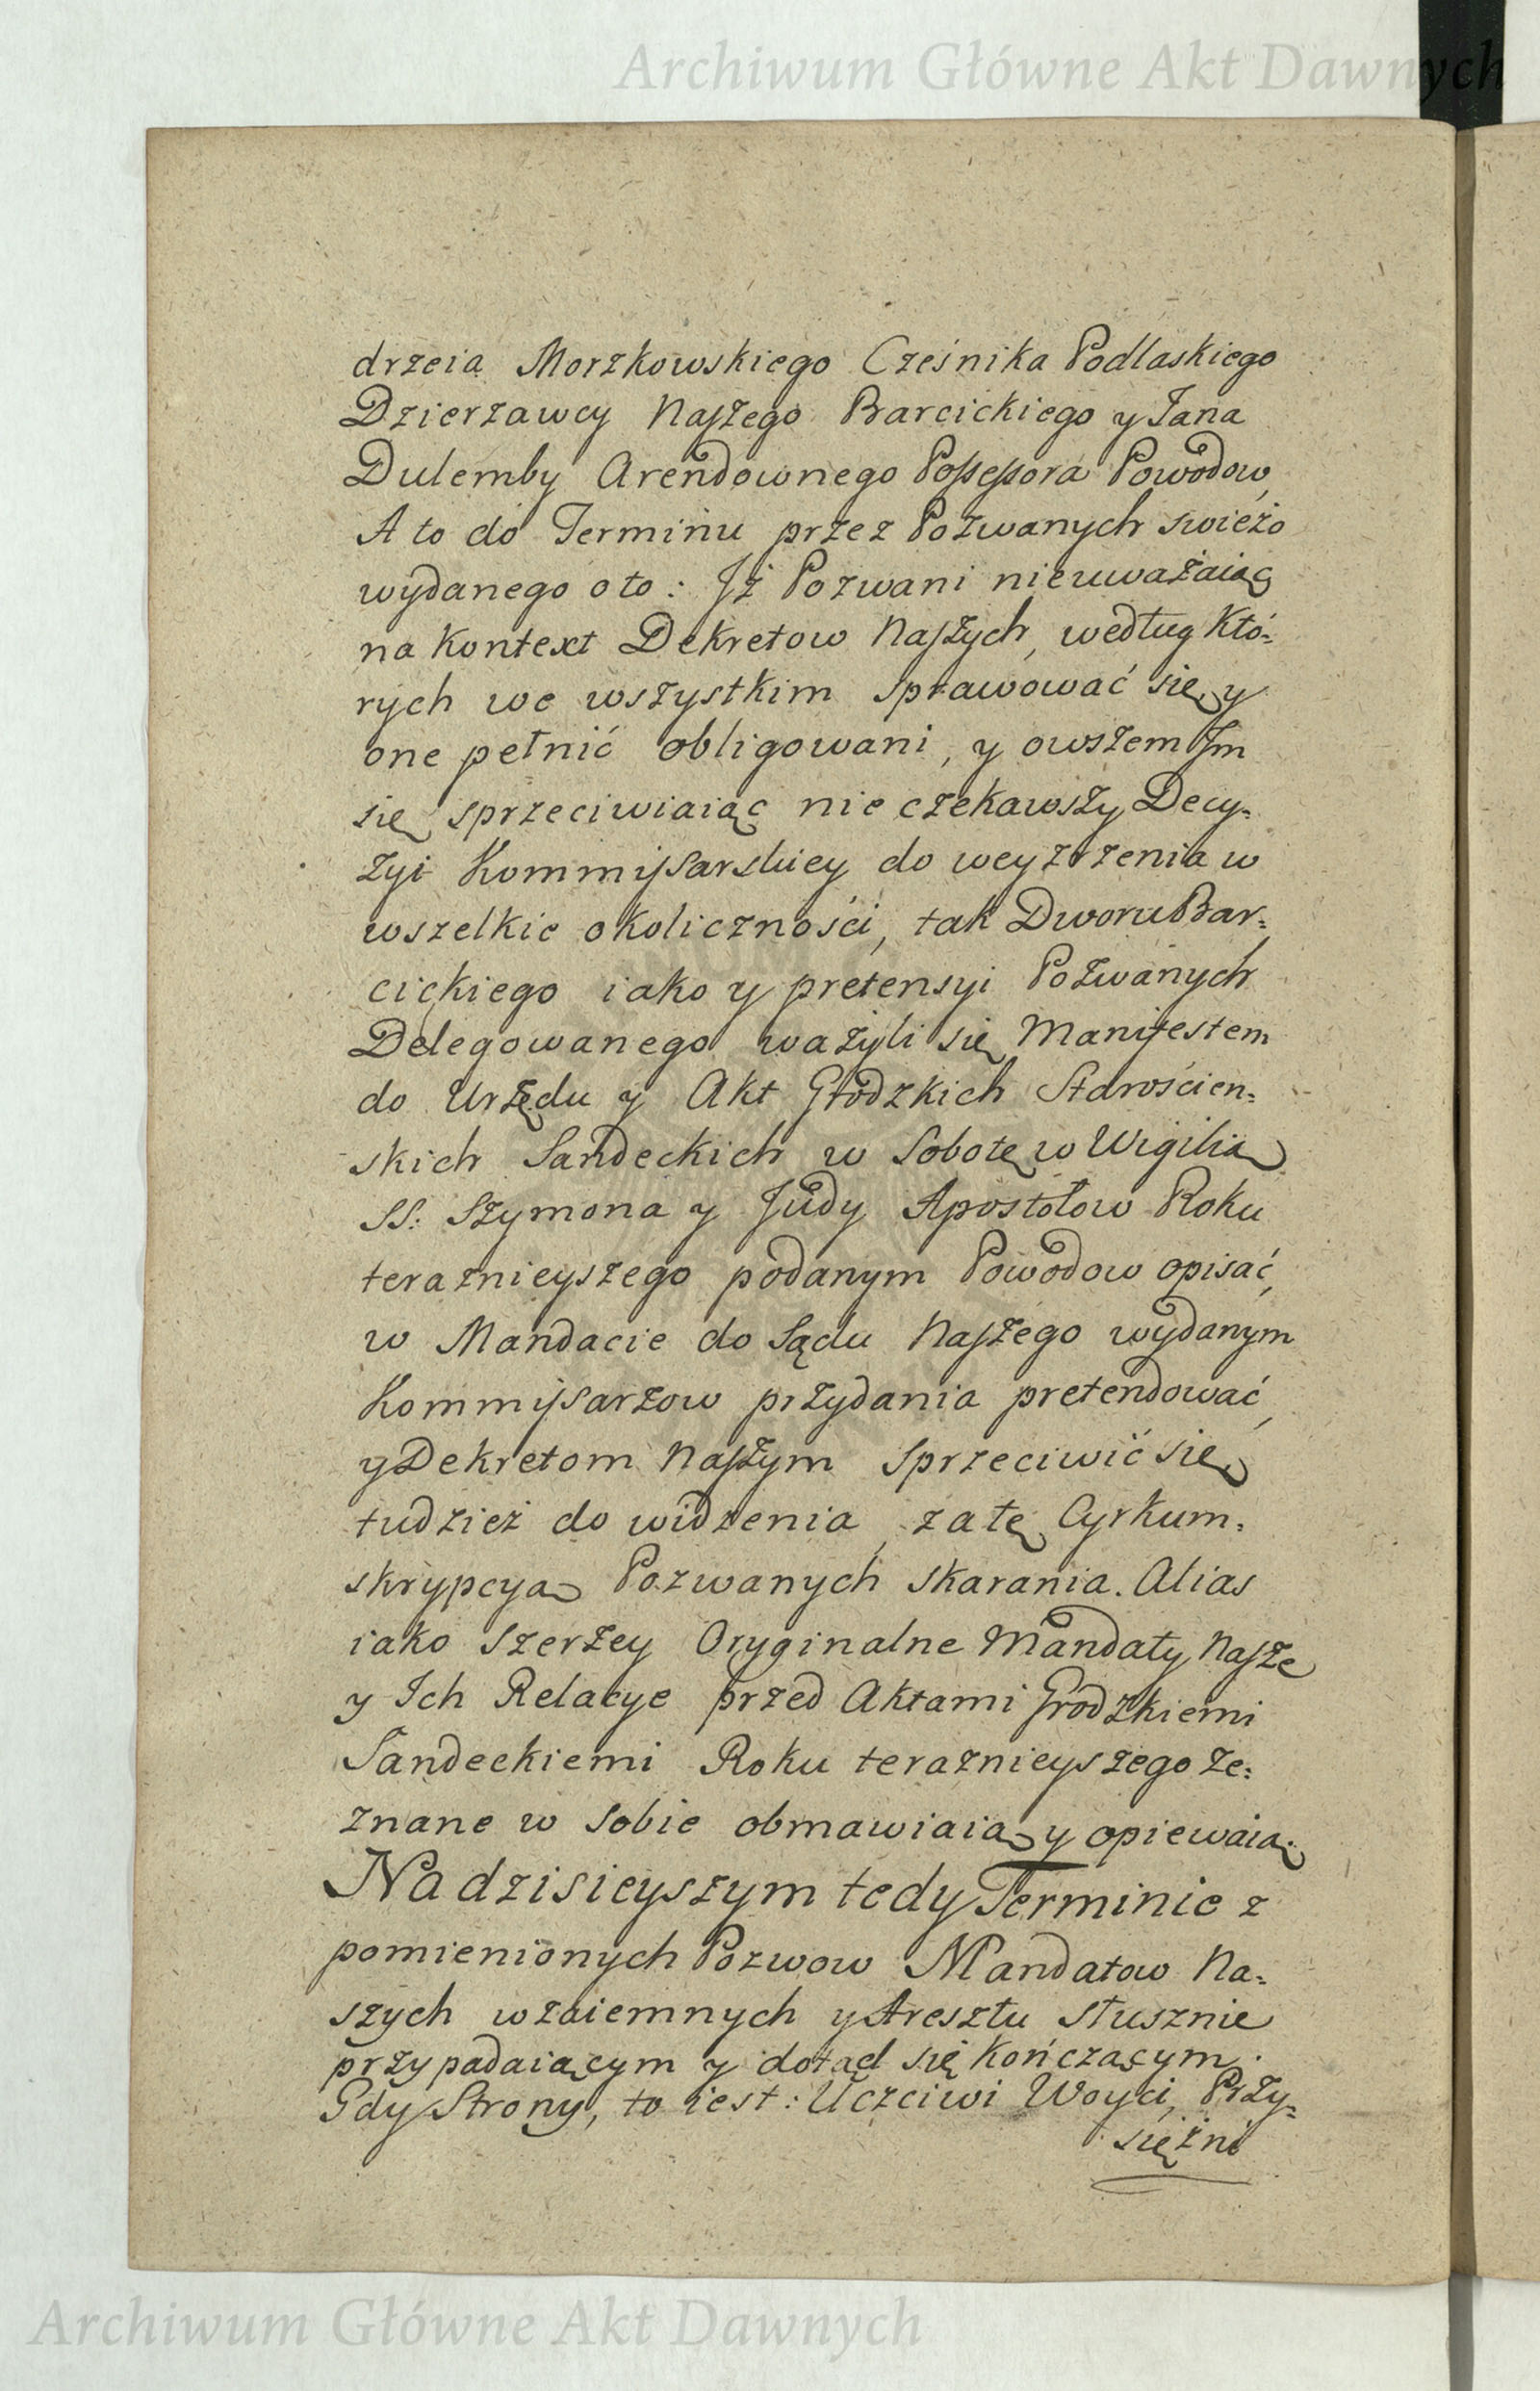 Archiwum Główne Akt Dawnych
drzeia Morzkowskiego Cześnika Podlaskiego
Dzierzawcy Naszego Barcickiego y Jana
Dulemby Arendownego Possessora Powodow,
A to do Terminu przez Pozwanych swieżo
wydanego oto: Jż Pozwani nieuważaiąc
na Kontext Dekretow Naszych, według Któ=
rych we wszystkim sprawować się y
one pełnić obligowani, y owszem Jm
się sprzeciwiaiąc nie czekawszy Decy=
zyi Kommissarskiey do weyzrzenia w
wszelkie okoliczności, tak Dworu Bar=
cickiego iako y pretensyi Pozwanych
Delegowanego ważyli się Manifestem
do Urzędu y Akt Grodzkich Starościen=
skich Sandeckich w Sobotę w Wigilią
SS: Szymona y Judy Apostołow Roku
teraznieyszego podanym Powodow opisać,
w Mandacie do Sądu Naszego wydanym
Kommissarzow przydania pretendować,
y Dekretom Naszym Sprzeciwić się,
tudzież do widzenia, za tę Cyrkum=
skrypcyą Pozwanych skarania. Alias
iako szerzey Oryginalne Mandaty Nasze
y Ich Relacye przed Aktami Grodzkiemi
Sandeckiemi Roku teraznieyszego ze=
znane w sobie obmawiaią y opiewaią.
Na dzisieyszym tedy Terminie z
pomienionych Pozwow Mandatow Na=
szych wzaiemnych y Aresztu słusznie
przypadaiącym y dotąd się Kończącym.
Gdy Strony, to iest: Uczciwi Woyci, Przy=
siężni
Archiwum Główne Akt Dawnych